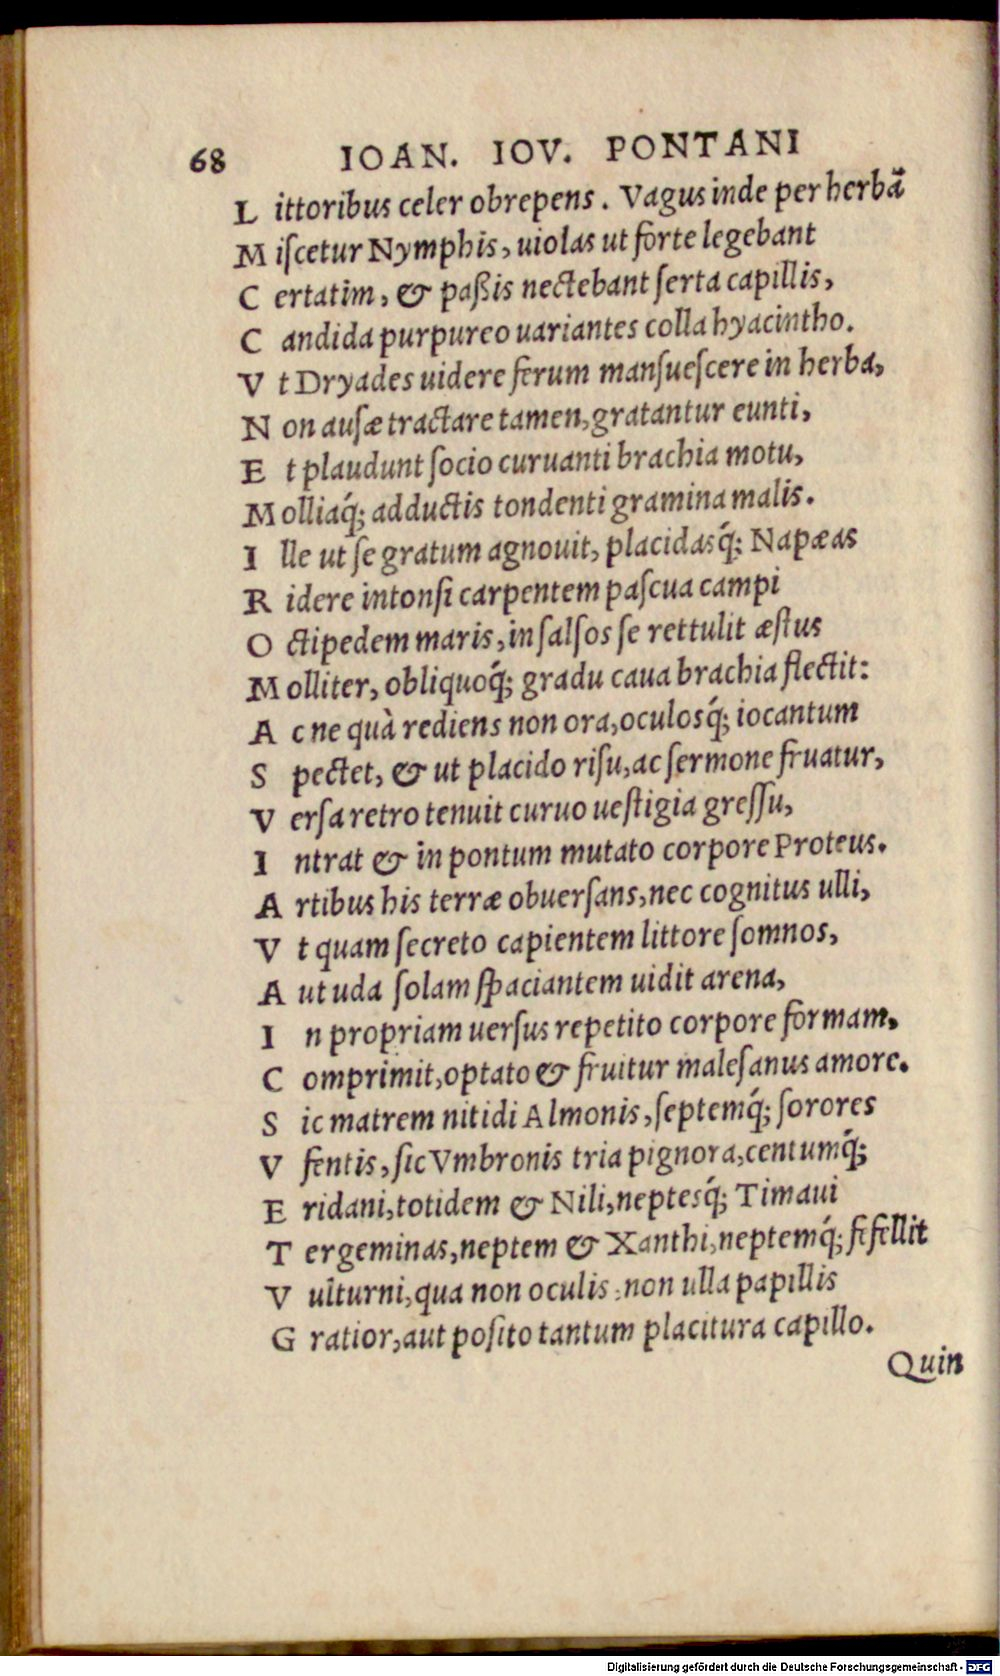 68 IOAN. IOV. PONTANI
L ittoribus celer obrepens. Vagus inde per herbā
M iſcetur Nymphis, uiolas ut forte legebant
C ertatim, & paßis nectebant ſerta capillis,
C andida purpureo uariantes colla hyacintho.
V t Dryades uidere ferum manſueſcere in herba,
N on auſæ tractare tamen, gratantur eunti,
E t plaudunt ſocio curuanti brachia motu,
M olliaq́; adductis tondenti gramina malis.
I lle ut ſe gratum agnouit, placidasq́; Napæas
R idere intonſi carpentem paſcua campi
O ctipedem maris, in ſalſos ſe rettulit æſtus
M olliter, obliquoq́; gradu caua brachia flectit:
A c ne quà rediens non ora, oculosq́; iocantum
S pectet, & ut placido riſu, ac ſermone fruatur,
V erſa retro tenuit curuo ueſtigia greſſu,
I ntrat & in pontum mutato corpore Proteus.
A rtibus his terræ obuerſans, nec cognitus ulli,
V t quam ſecreto capientem littore ſomnos,
A ut uda ſolam ſpaciantem uidit arena,
I n propriam uerſus repetito corpore formam,
C omprimit, optato & fruitur maleſanus amore.
S ic matrem nitidi Almonis, ſeptemq́; ſorores
V fentis, ſic Vmbronis tria pignora, centumq́;
E ridani, totidem & Nili, neptesq́; Timaui
T ergeminas, neptem & Xanthi, neptemq́; fefellit
V ulturni, qua non oculis, non ulla papillis
G ratior, aut poſito tantum placitura capillo.
Quin
Digitalisierung gefördert durch die Deutsche Forschungsgemeinschaft - DFG